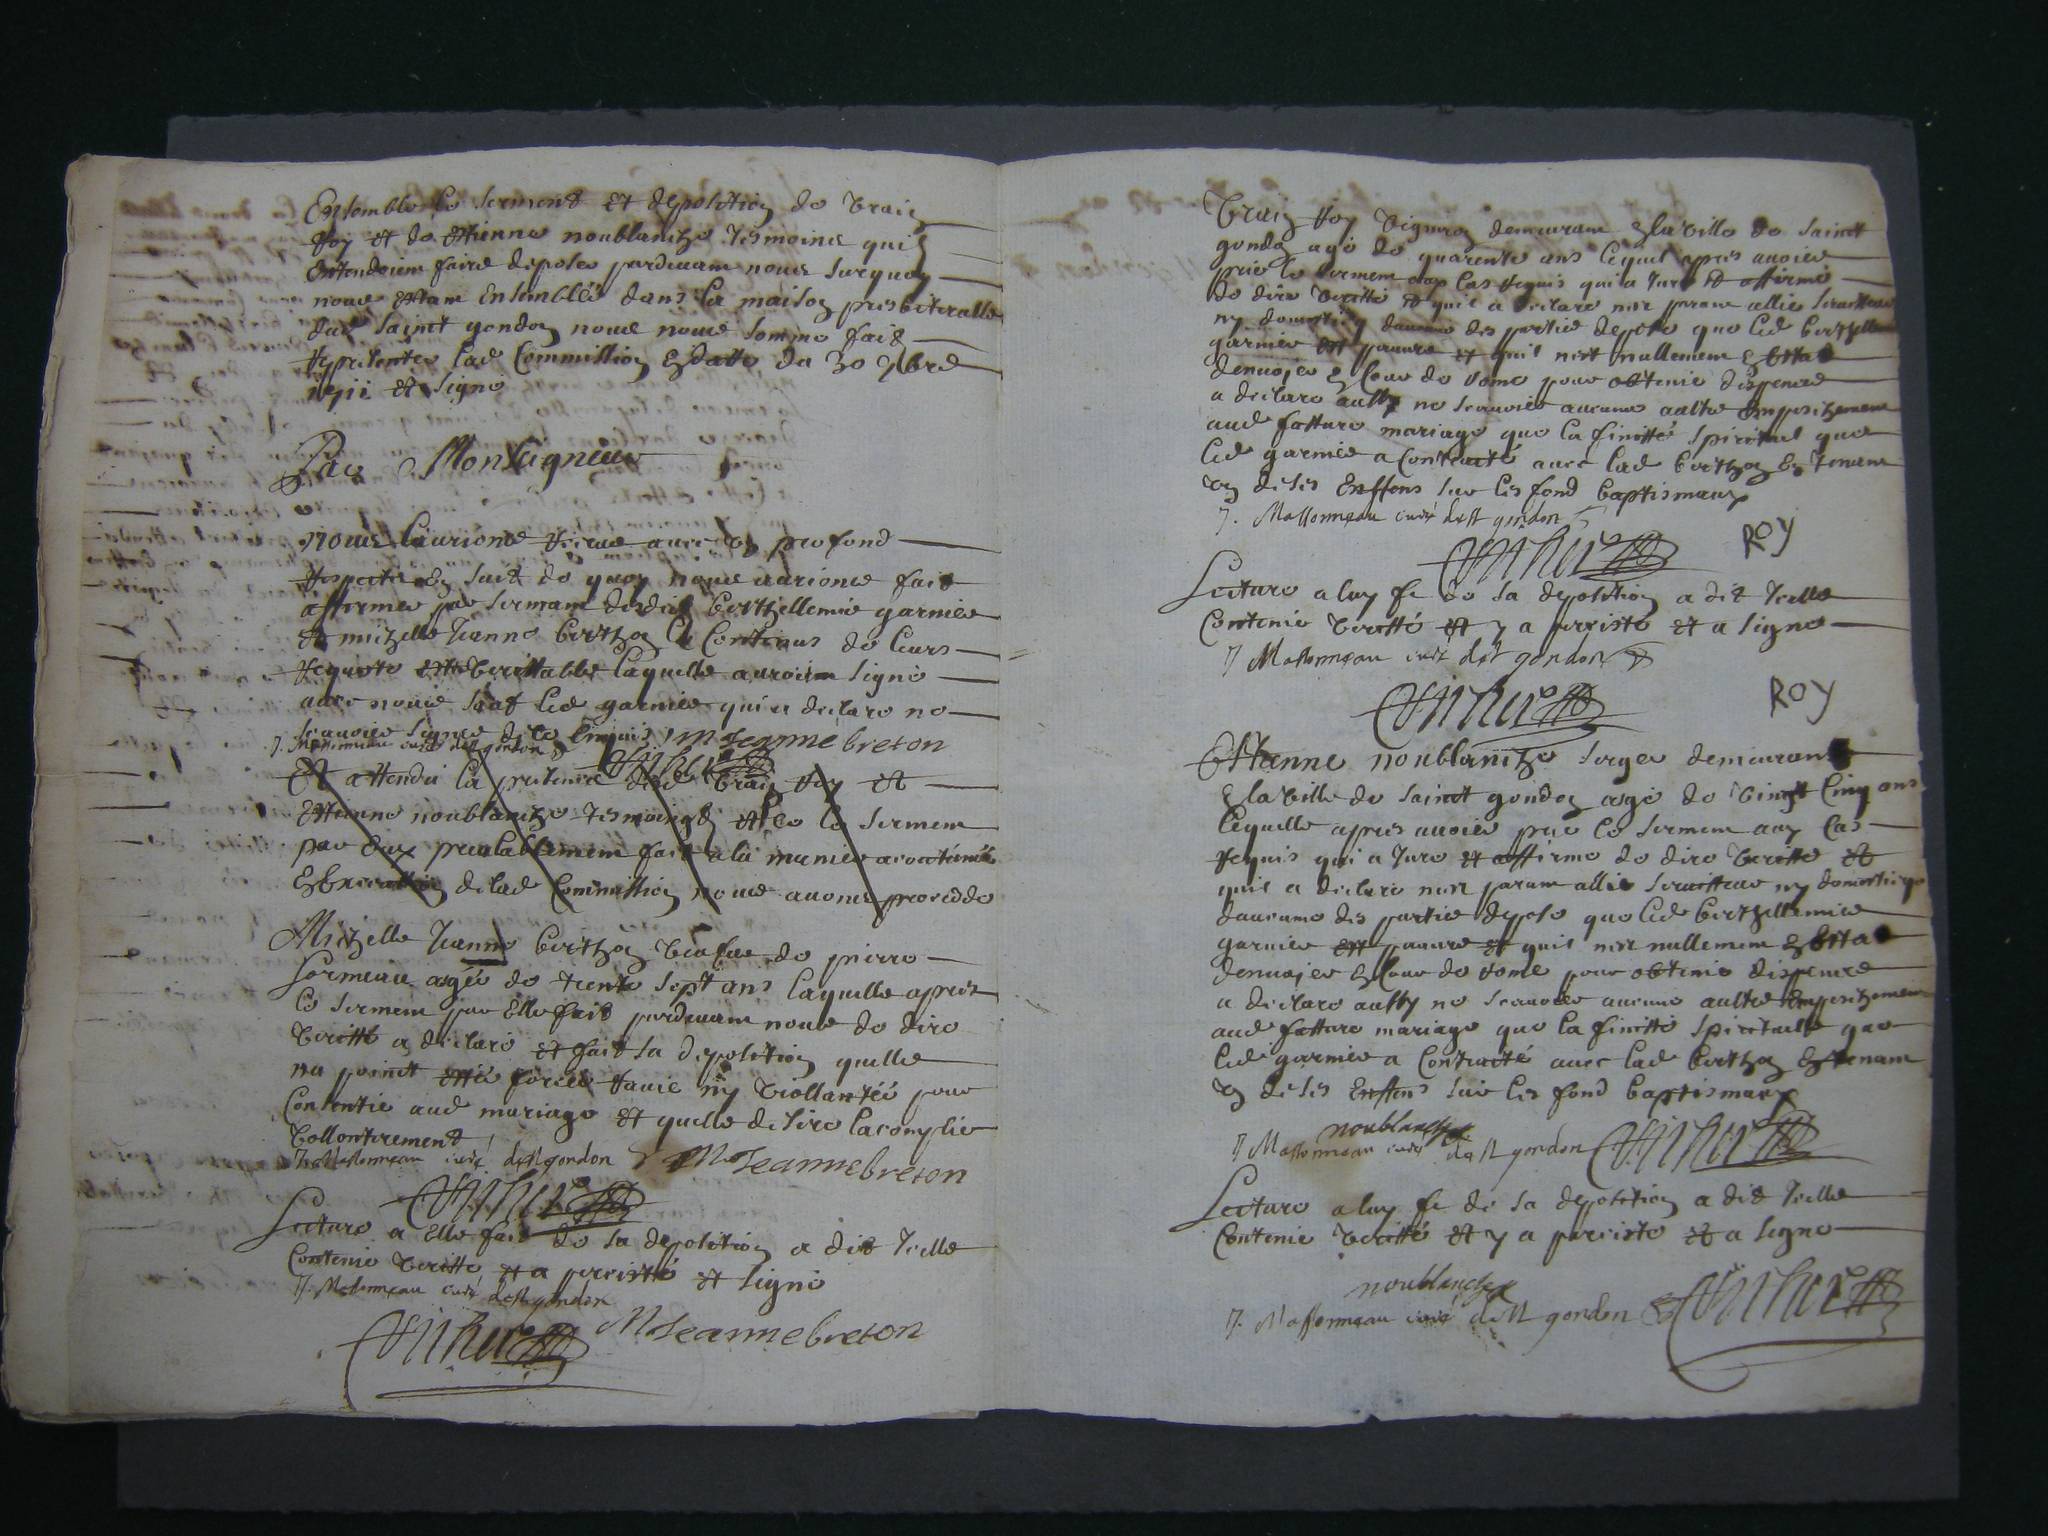 Ensemble le serment et deposition de Brain
Roy et de Ettienne noublanche tesmoins quil
Entendoient faire deposer pardevant nous surquoy
nous estant Ensemblé dans la maison presbiteralle
dud saint gondon nous nous somme fait
representer lad Commission En datte du 30
et signé
Par Monseigneur
nous laurions receue avec un profond
respecte En suit de quoy nous aurions fait
affirmer par sermant desdit berthellemie garnier
et michelle Jeanne berthon le Contenus de leurs
requete estre verittable laquelle auroient signé
avec nous sauf led garnier qui a declare ne
scavoir signer de ce enquis M Jeanne breton
J. Massonneau curé de st gondon
Et attendu la presence desd Brain Roy et
Ettienne noublanche tesmoings et le serment
par Eux prealablement fait a la maniere acoutumée
En Execution de lad Commission nous avons procédé
Michelle Jeanne berthon veufue de pierre
Lormeau agée de trente sept ans laquelle apres
le serment par Elle fait pardevant nous de dire
veritté a declaré et fait sa deposition quelle
na point esté forcée ravie ny viollantéé pour
Consentir aud mariage et quelle desire lacomplir
vollontairement
J. Massonneau curé de st gondon M Jeanne breton
Lecture a Elle fait de sa deposition a dit Icelle
Contenir veritte et a persisté et signé
J. Massonneau curé de st gondon
M Jeanne breton
Brain Roy vigneron demeurant En la ville de saint
gondon agé de quarente ans lequel apres avoir
pris le serment aux Cas requis qui a Juré et affirmé
de dire veritté et quil a declaré nest parant allié serviteur
ny domestiq daucune des partie depose que led berthellemie
garnier est pauvre et quil nest nullement En Estat
denvojer En Cour de rome pour obtenir dispence
a declaré aussy ne scavoir aucune aultre Empeschement
aud futture mariage que la finitté spirituel que
led garnier a Contracté avec lad berthon En tenant
un de ses Enffens sur les fond baptismaux
J. Massonneau curé de st gondon
ROY
Lecture a luy fe de sa deposition a dit Icelle
Contenir veritté et y a persisté et a signé
J Massonneau curé de st gondon
ROY
Ettienne noublanche serger demeurant
En la ville de saint gondon agé de vingt Cinq ans
lequelle apres avoir pris le serment aux Cas
requis qui a Juré et affirmé de dire veritté et
quil a declaré nest parant allié serviteur ny domestique
daucune des partie depose que led berthellemie
garnier est pauvre et quil nest nullement En Estat
denvojer En Cour de rome pour obtenir dispence
a declaré aussy ne scavoir aucune aultre Empeschement
aud futture mariage que la finitté spirituelle que
led garnier a Contracté avec lad berthon En tenant
un de ses Enffens sur les fond baptismaux
noublanche
J Massonneau curé de st gondon
Lecture a luy fe de sa deposition a dit Icelle
Contenir veritté et y a persisté et a signé
noublanche
J. Massonneau curé de st gondon